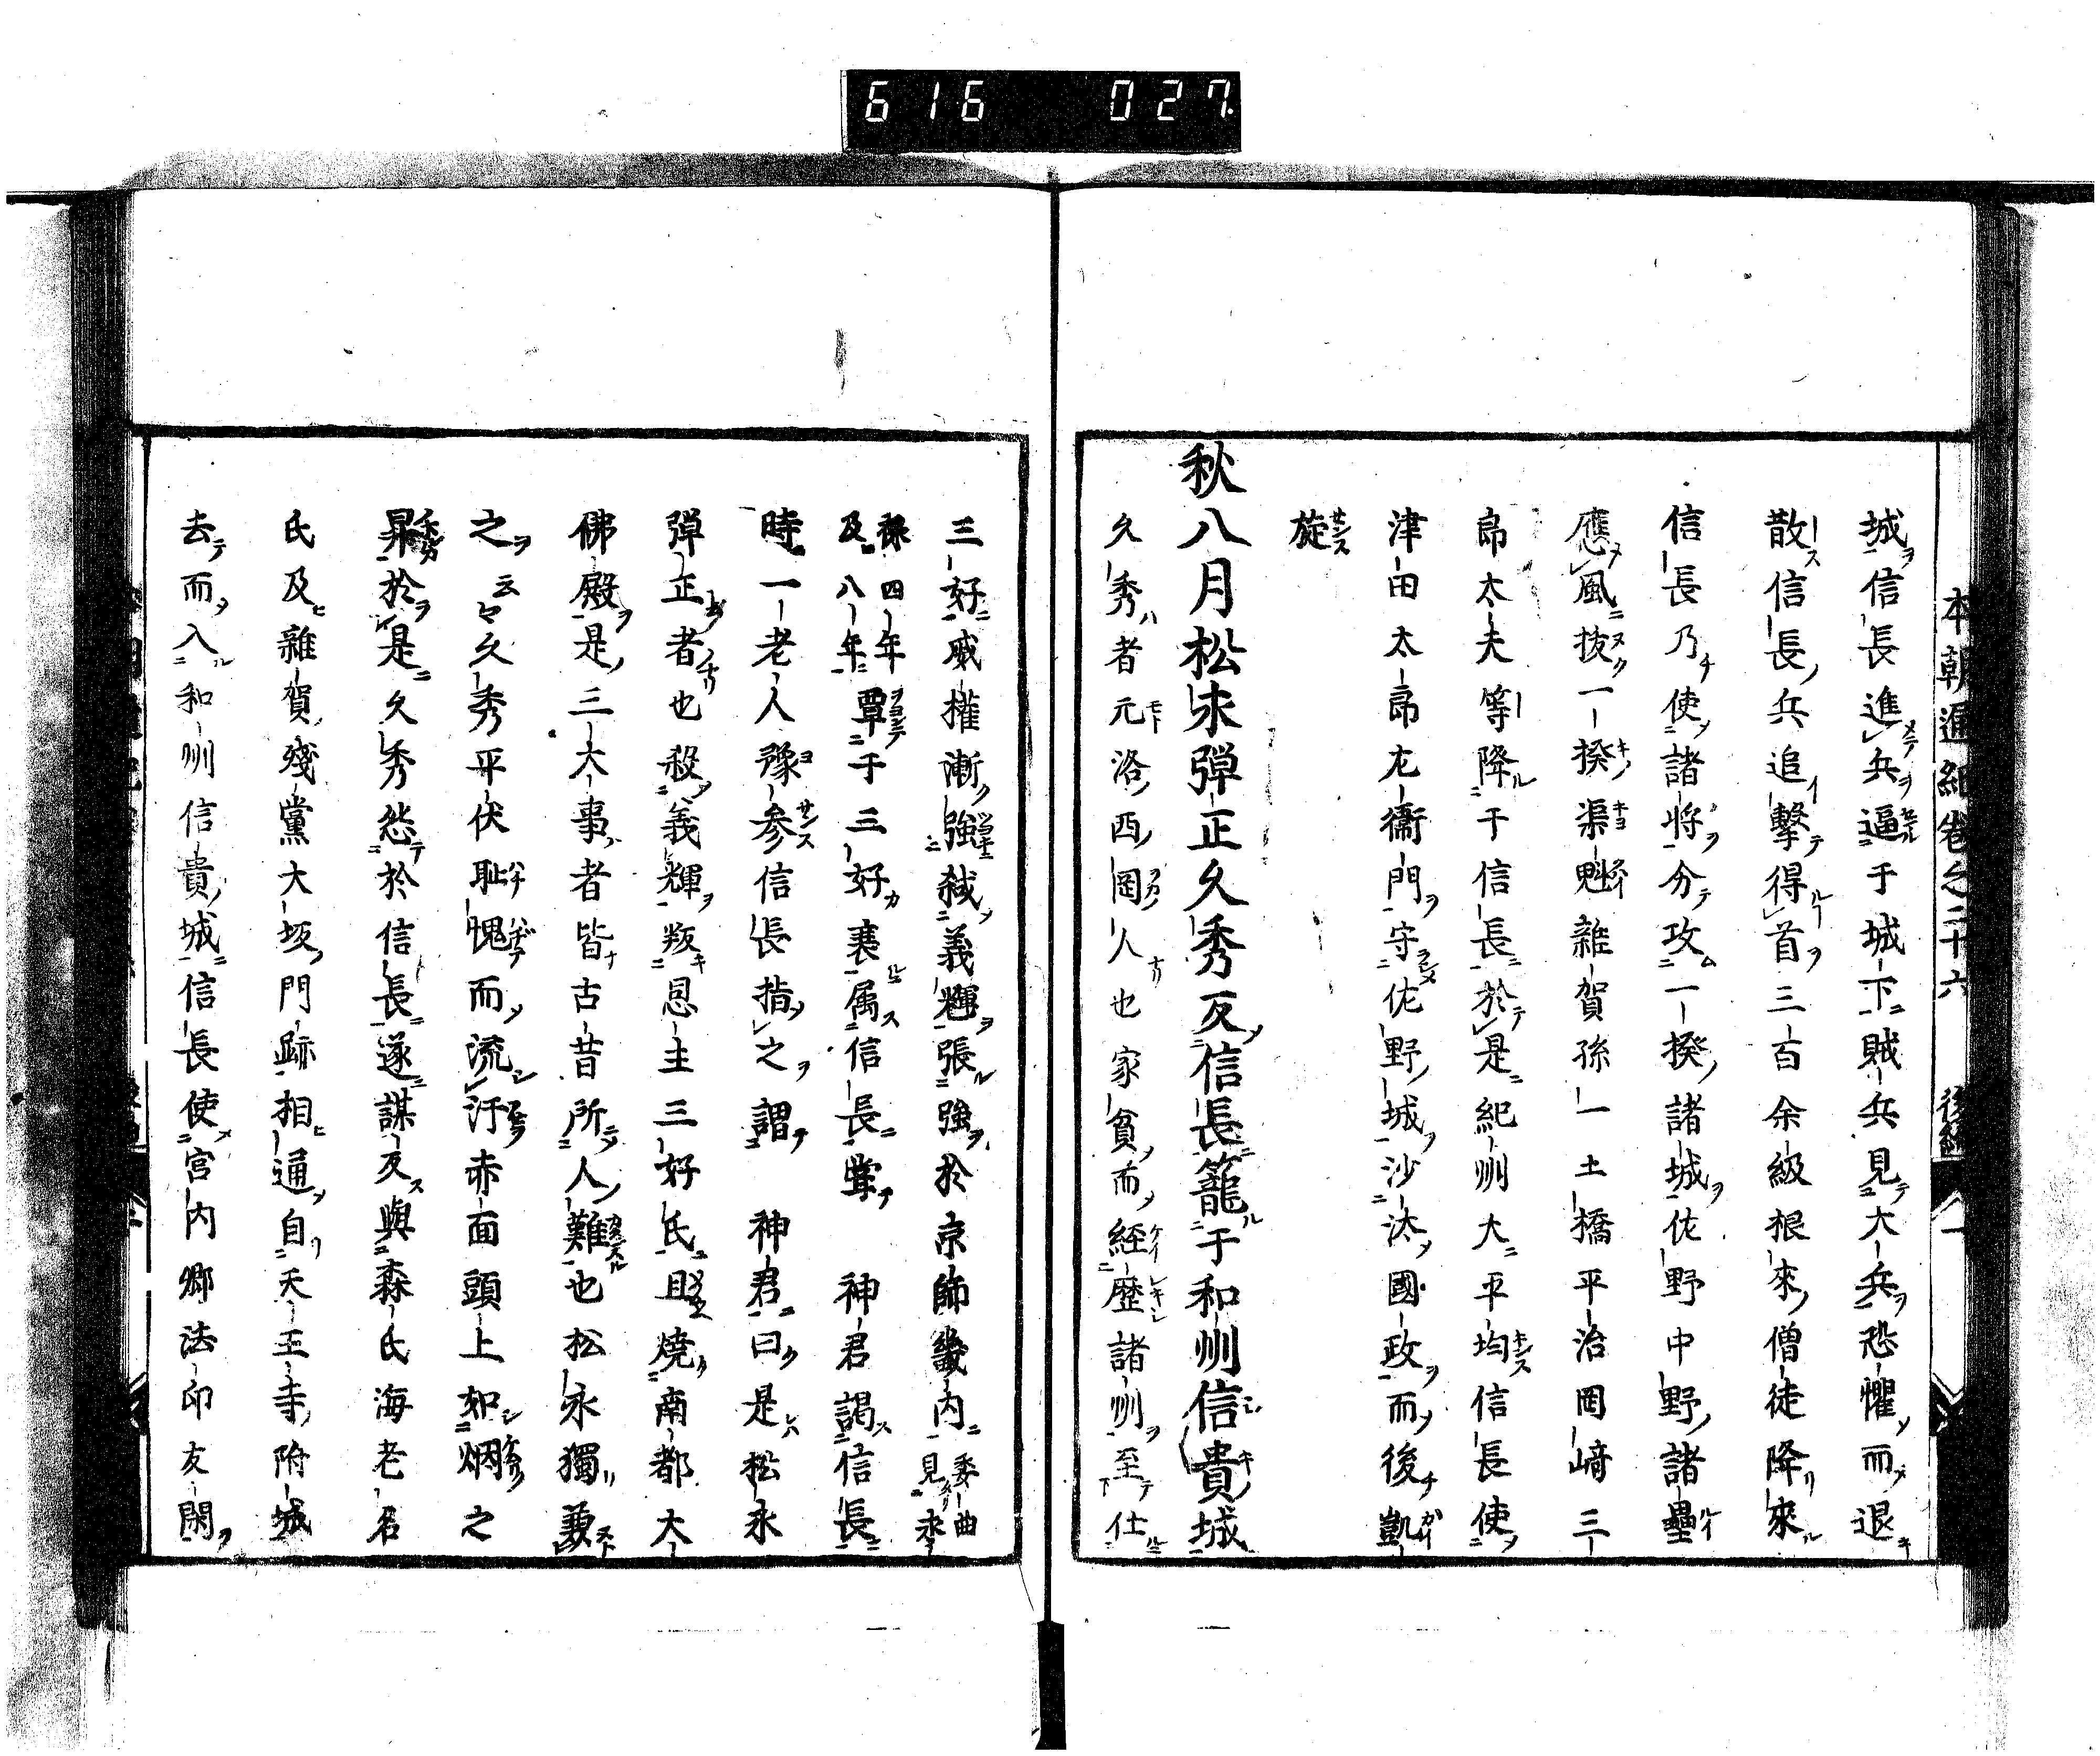 616 027
本朝通紀卷之二十六 後編
城信長進兵逼于城下賊兵見大兵恐懼而退
散信長兵追擊得首三百余級根來僧徒降來
信長乃使諸將分攻一揆諸城佐野中野諸壘
應風拔一揆渠魁雜賀孫一土橋平治岡﨑三
郎太夫等降于信長於是紀州大平均信長使
津田太郎左衞門守佐野城沙汰國政而後凱
旋
秋八月松永彈正久秀反信長籠于和州信貴城
久秀者元洛西岡人也家貧而経歷諸州至仕
三好威權漸強弑義輝張強於京師畿内委曲見永
祿四年及八年覃于三好衰属信長嘗 神君謁信長
時一老人豫参信長指之謂 神君曰是松永
彈正者也殺義輝叛恩主三好氏且燒南都大
佛殿是三大事者皆古昔所人難也松永獨兼
之云々久秀平伏耻愧而流汗赤面頭上如烟之
昇於是久秀愁於信長遂謀反與森氏海老名
氏及雜賀殘黨大坂門跡相通自天王寺附城
去而入和州信貴城信長使宮内卿法印友閑